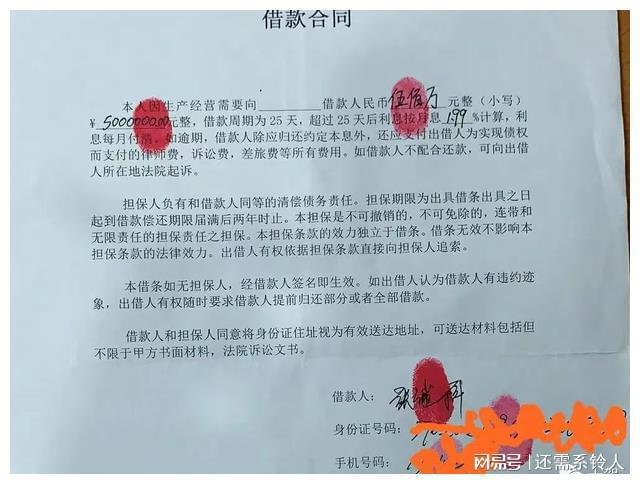 借款合同
本人因生产经营需要向________借款人民币伍佰万元整（小写）
¥ 5000000.00元整，借款周期为 25 天，超过 25 天后利息按月息 1.99 %计算，利
息每月付清。如逾期，借款人除应归还约定本息外，还应支付出借人为实现债权
而支付的律师费，诉讼费，差旅费等所有费用。如借款人不配合还款，可向出借
人所在地法院起诉。
担保人负有和借款人同等的清偿债务责任。担保期限为出具借条出具之日
起到借款偿还期限届满后两年时止。本担保是不可撤销的，不可免除的，连带和
无限责任的担保责任之担保。本担保条款的效力独立于借条。借条无效不影响本
担保条款的法律效力。出借人有权依据担保条款直接向担保人追索。
本借条如无担保人，经借款人签名即生效。如出借人认为借款人有违约迹
象，出借人有权随时要求借款人提前归还部分或者全部借款。
借款人和担保人同意将身份证住址视为有效送达地址，可送达材料包括但
不限于甲方书面材料，法院诉讼文书。
借款人：张继科
身份证号码：
手机号码：
网易号 | 还需系铃人